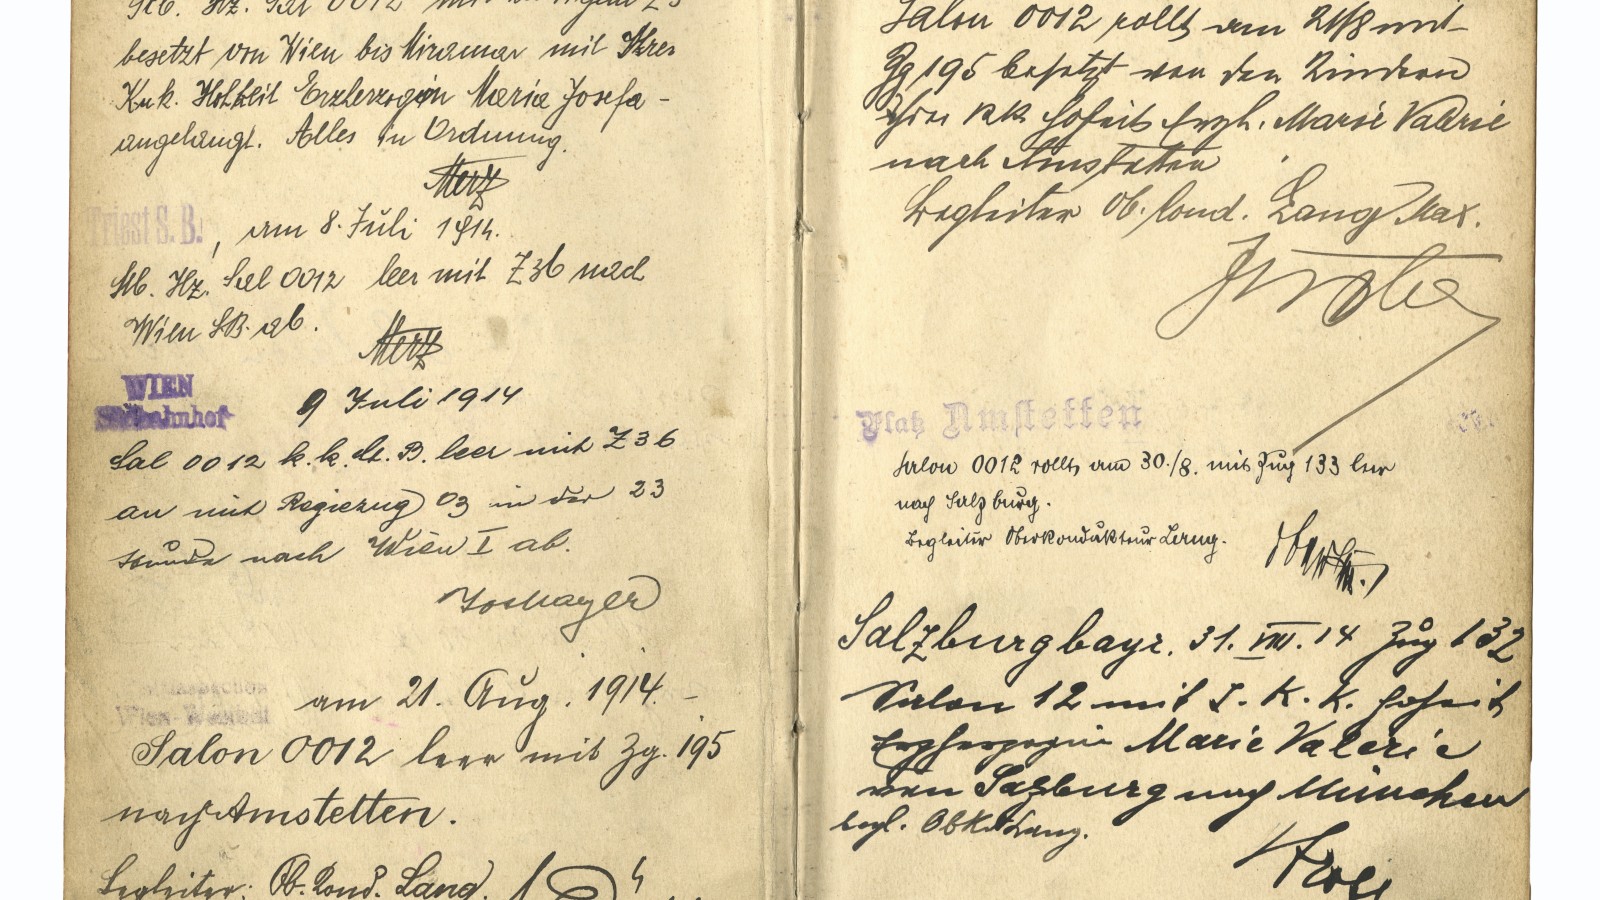 Stb. Hz. Sal 0012 mit
besetzt von Wien bis Miramar mit Ihrer
K u k. Hohheit Erzherzogin Maria Josefa -
angelangt. Alles in Ordnung.
Merz
Triest S. B., am 8. Juli 1914.
Stb. Hz. Sal 0012 leer mit Z 36 nach
Wien SB. ab.
Merz
WIEN
Südbahnhof
9 Juli 1914
Sal 0012 k. k. St. B. leer mit Z 36
an mit Regiezug 03 in der 23
Stunde nach Wien I ab.
am 21. Aug. 1914. -
Wien-Westbf
Salon 0012 leer mit Zg. 195
nach Amstetten.
Begleiter: Ob. Cond. Lang.
Salon 0012 rollt am 21/8 mit
Zg 195 besetzt von den Kindern
Ihrer kk Hoheit Erzh. Marie Valerie
nach Amstetten
Begleiter Ob. Cond. Lang Max.
Platz Amstetten
Salon 0012 rollt am 30./8. mit Zug 133 leer
nach Salzburg.
Begleiter Oberkondukteur Lang.
Salzburg bayr. 31. VIII. 14 Zug 132
Salon 12 mit I. K. K. Hoheit
Erzherzogin Marie Valerie
von Salzburg nach München
begl. Obk. Lang.